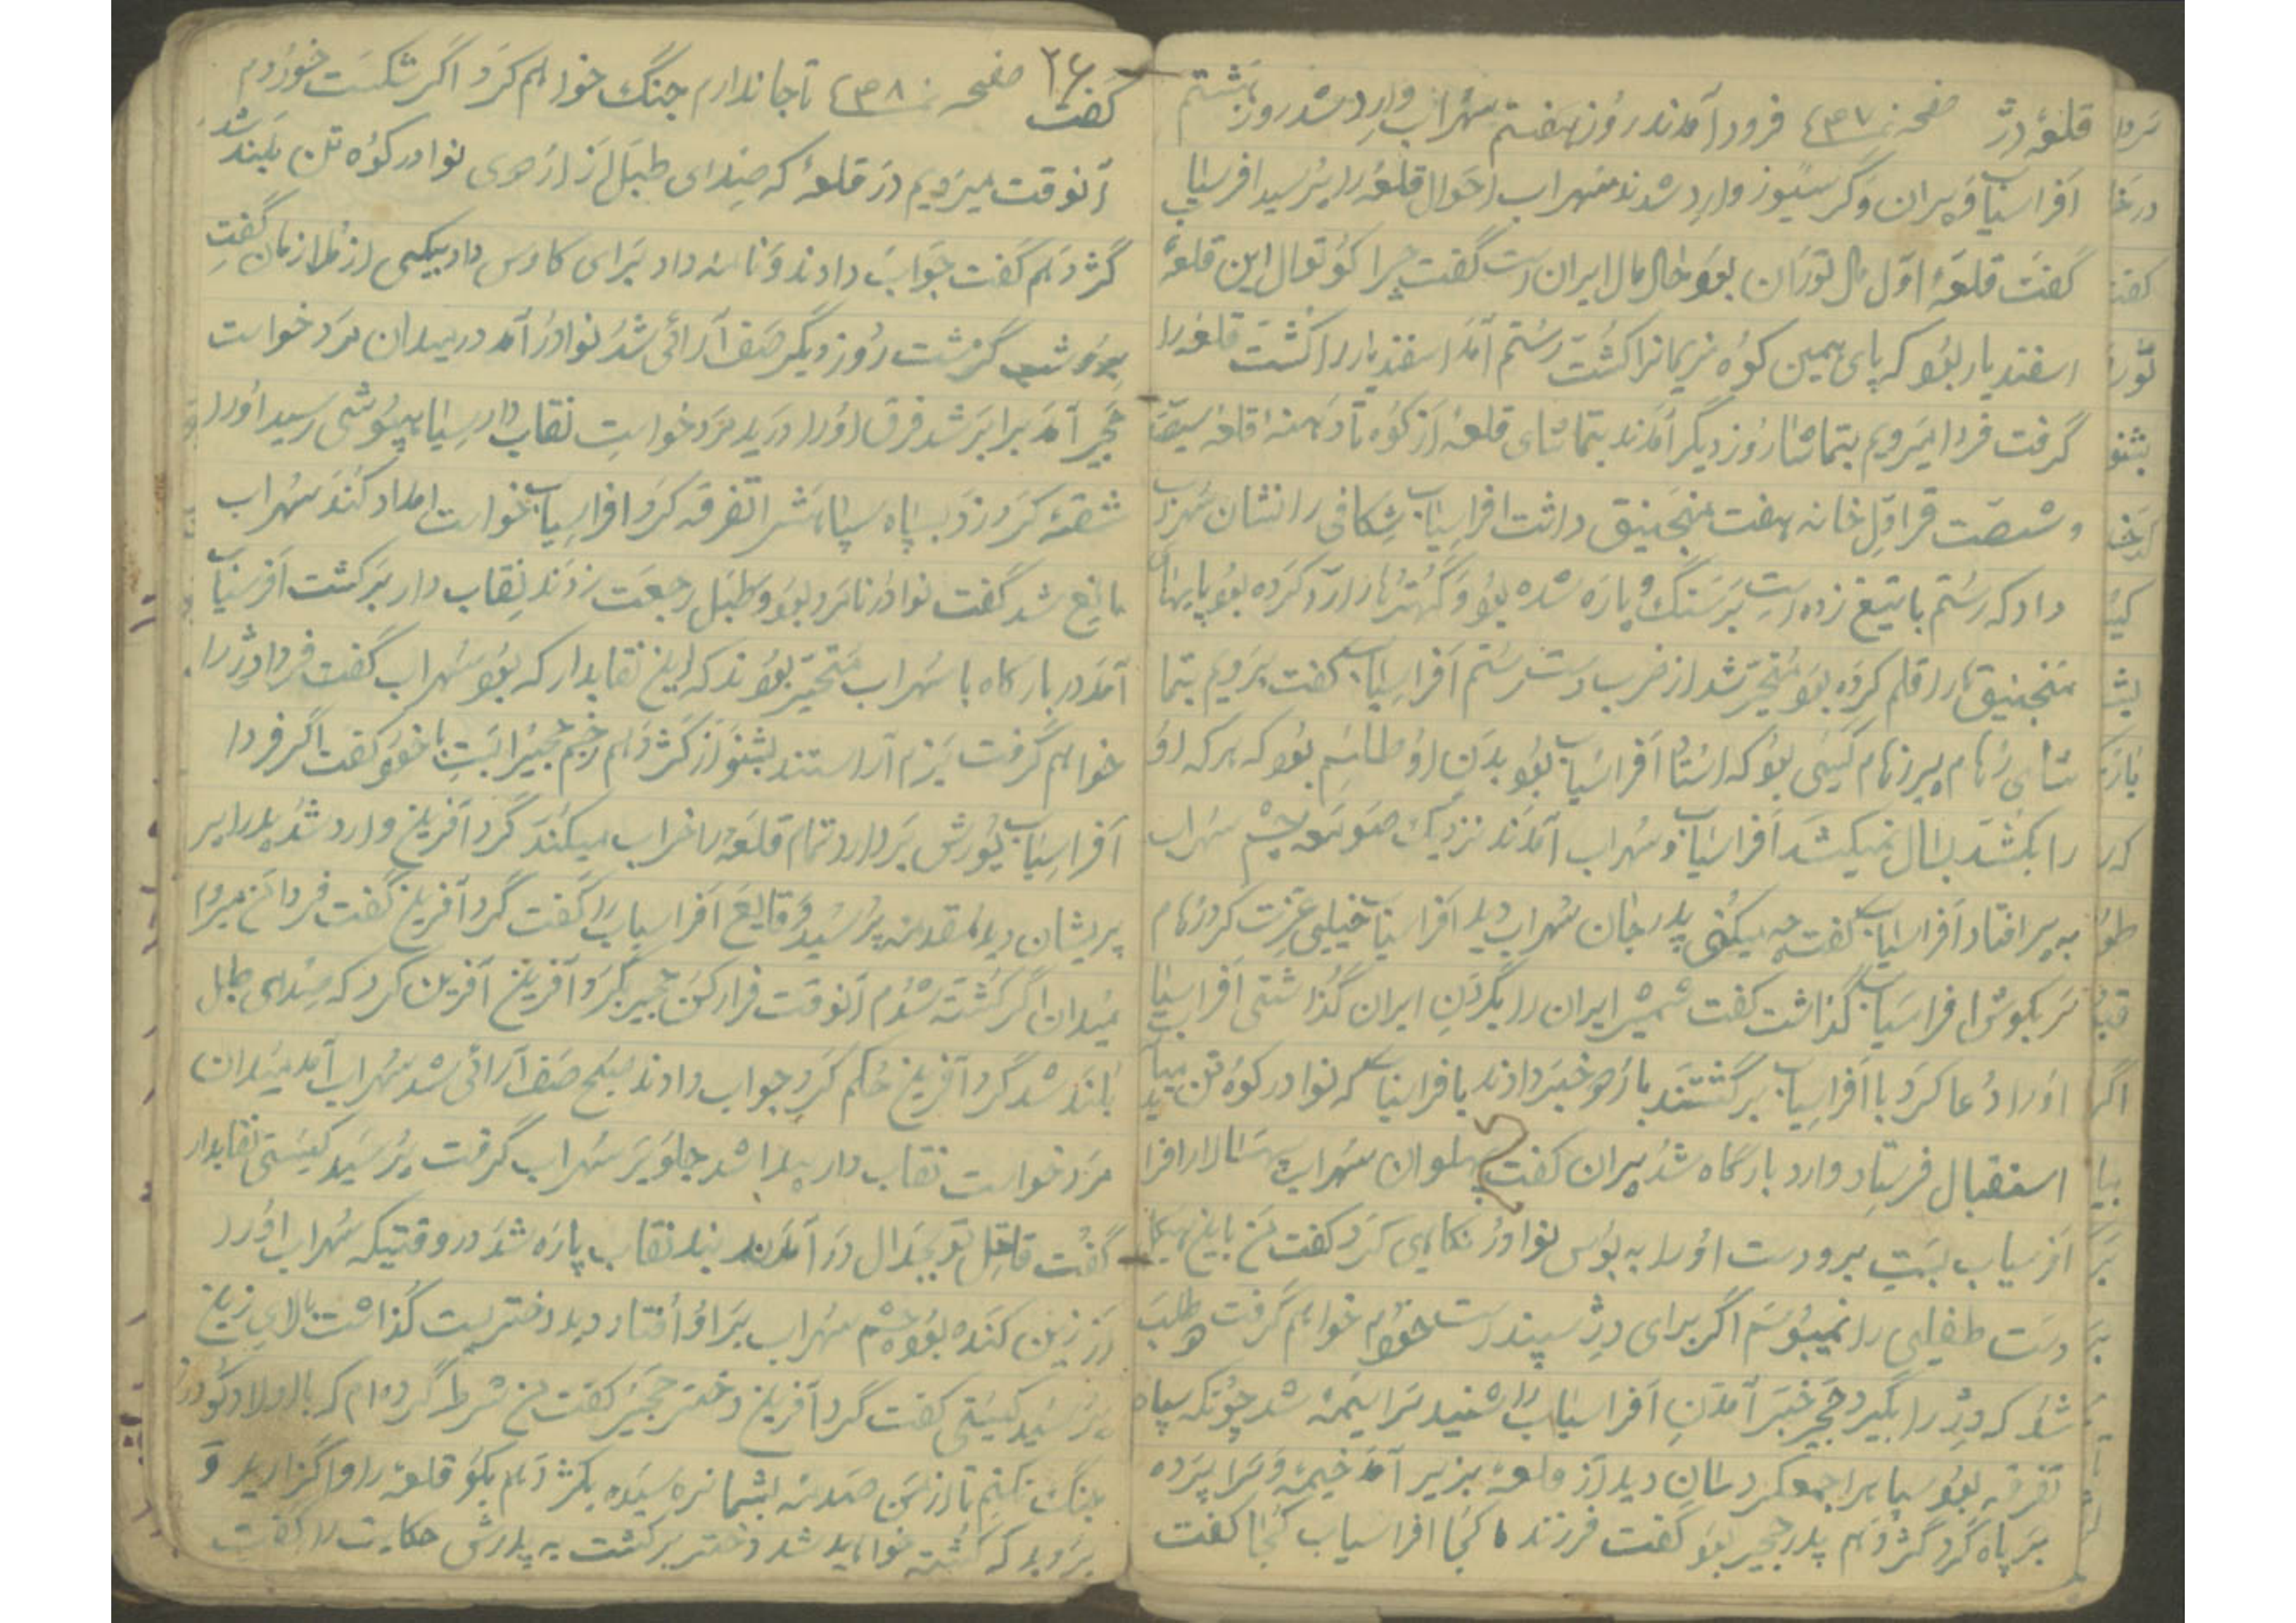 قلعهٔ دژ صفحه نمره ۴۳۷ فرود آمدند روز هفتم سهراب وارد شد روز هشتم
افراسیاب و پیران و گرسیوز وارد شدند سهراب احوال قلعه را پرسید افراسیاب
گفت قلعهٔ اول مال توران بود حال مال ایران است گفت چرا کوتوال این قلعهٔ
اسفندیار بود که پای همین کوه نریمانرا کشت رستم آمد اسفندیار را کشت قلعه را
گرفت فردا میرویم بتماشا روز دیگر آمدند بتماشای قلعه از کوه تا دهنه قلعه
و شصت قراول خانه هفت منجنیق داشت افراسیاب شکافی را نشان سهراب
داد که رستم با تیغ زده است بر سنگ و پاره شده بود و را آرد کرده بود
منجنیق را قلم کرده بود متحیر شد از ضرب دست رستم افراسیاب گفت برویم بتما
شای رهام پیر رهام کیمی بود که استاد افراسیاب بود بدن او طلسم بود که هر که او
را بکشد بسال نمیکشد افراسیاب و سهراب آمدند نزدیک صومعه چشم سهراب
به پیر افتاد افراسیاب گفت چه میکنی پدر جان سهراب دید افراسیاب خیلی عزت کرد رهام
سر بگوش افراسیاب گذاشت گفت شمشیر ایران را بگردن ایران گذاشتی افراسیاب
او را دعا کرد با افراسیاب برگشتند باز خبر دادند بافراسیاب که نوادر کوه تن میآید
استقبال فرستاد وارد بارگاه شد پیران گفت پهلوان سهراب سپهسالار افرا
افرسیاب است برو دست او را به بوس نوادر نگاهی کرد گفت من باین
دست طفلی را نمیبوسم اگر برای دژ سپند است خودم خواهم گرفت طلب
شد که دژ را بگیرد حجیر خبر آمدن افراسیاب را شنید سراسیمه شد چونکه سپاه
تفرقه بود سپاه را جمع کرد سان دید از قلعه بزیر آمد خیمه و سراپرده
بر پا کرد گژدهم پدر حجیر بود گفت فرزند ما کجا افراسیاب کجا گفت
۲۶
گفت صفحه نمره ۴۳۸ تا جاندارم جنگ خواهم کرد اگر شکست خوردم
آنوقت میرویم در قلعهٔ که صدای طبل از اردوی نوادر کوه تن بلند شد
گژدهم گفت جواب دادند و نامه داد برای کاوس داد بیکی از ملازمان گفت
برو شب گزشت روز دیگر صف آرائی شد نوادر آمد در میدان مرد خواست
حجیر آمد برابر شد فرق او را درید مرد خواست نقاب دار سیاه پوشی رسید او را
شقه کرد زد بسپاه سپاه متفرقه کرد افراسیاب خواست امداد کند سهراب
مانع شد گفت نوادر نامرد بود و طبل رجعت زدند نقاب دار برگشت افرسیاب
آمد در بارگاه با سهراب متحیر بودند که این نقابدار که بود سهراب گفت فردا دژ را
خواهم گرفت بزم آراستند بشنو از گژدهم زخم حجیر را بست با خود گفت اگر فردا
افراسیاب یورش بردارد تمام قلعه را خراب میکند گرد آفرین وارد شد پدر را پر
پریشان دید مقدمه پرسید وقایع افراسیاب را گفت گرد آفرین گفت فردا من میروم
میدان اگر کشته شدم آنوقت فرار کن حجیر بگرد آفرین آفرین کرد که صدای طبل
بلند شد گرد آفرین حکم کرد جواب دادند صبح صف آرائی شد سهراب آمد میدان
مرد خواست نقاب دار پیدا شد جلو بر سهراب گرفت پرسید کیستی نقابدار
گفت قاتل تو بجدال در آمدند بند نقاب پاره شد در وقتیکه سهراب او را
از زین کنده بود چشم سهراب بر او افتاد دید دختریست گذاشت بالای زین
پرسید کیستی گفت گرد آفرین دختر حجیر گفت من شرط کرده ام که با اولاد گودرز
جنگ نکنم تا از من صدمه بشما نرسیده بگژدهم بگو قلعه را واگزارید و
بروید که کشته خواهید شد دختر برگشت به پدرش حکایت را گفت